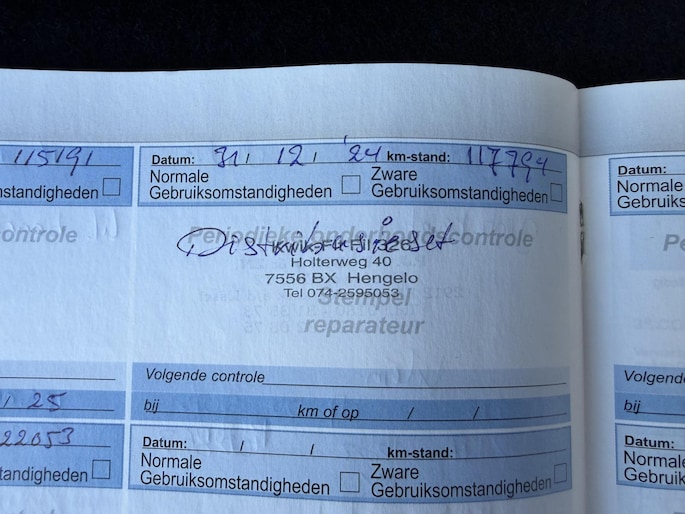 115191
standigheden
controle
/ 25
22053
tandigheden
Datum: 31 / 12 / '24 km-stand: 117794
Normale Gebruiksomstandigheden
Zware Gebruiksomstandigheden
Periodieke onderhoudscontrole
Holterweg 40
7556 BX Hengelo
Tel 074-2595053
Stempel
reparateur
Volgende controle
bij km of op / /
Datum: / / km-stand:
Normale Gebruiksomstandigheden
Zware Gebruiksomstandigheden
Datum:
Normale
Gebruiks
Pe
Volgende
bij
Datum:
Normale
Gebruikso